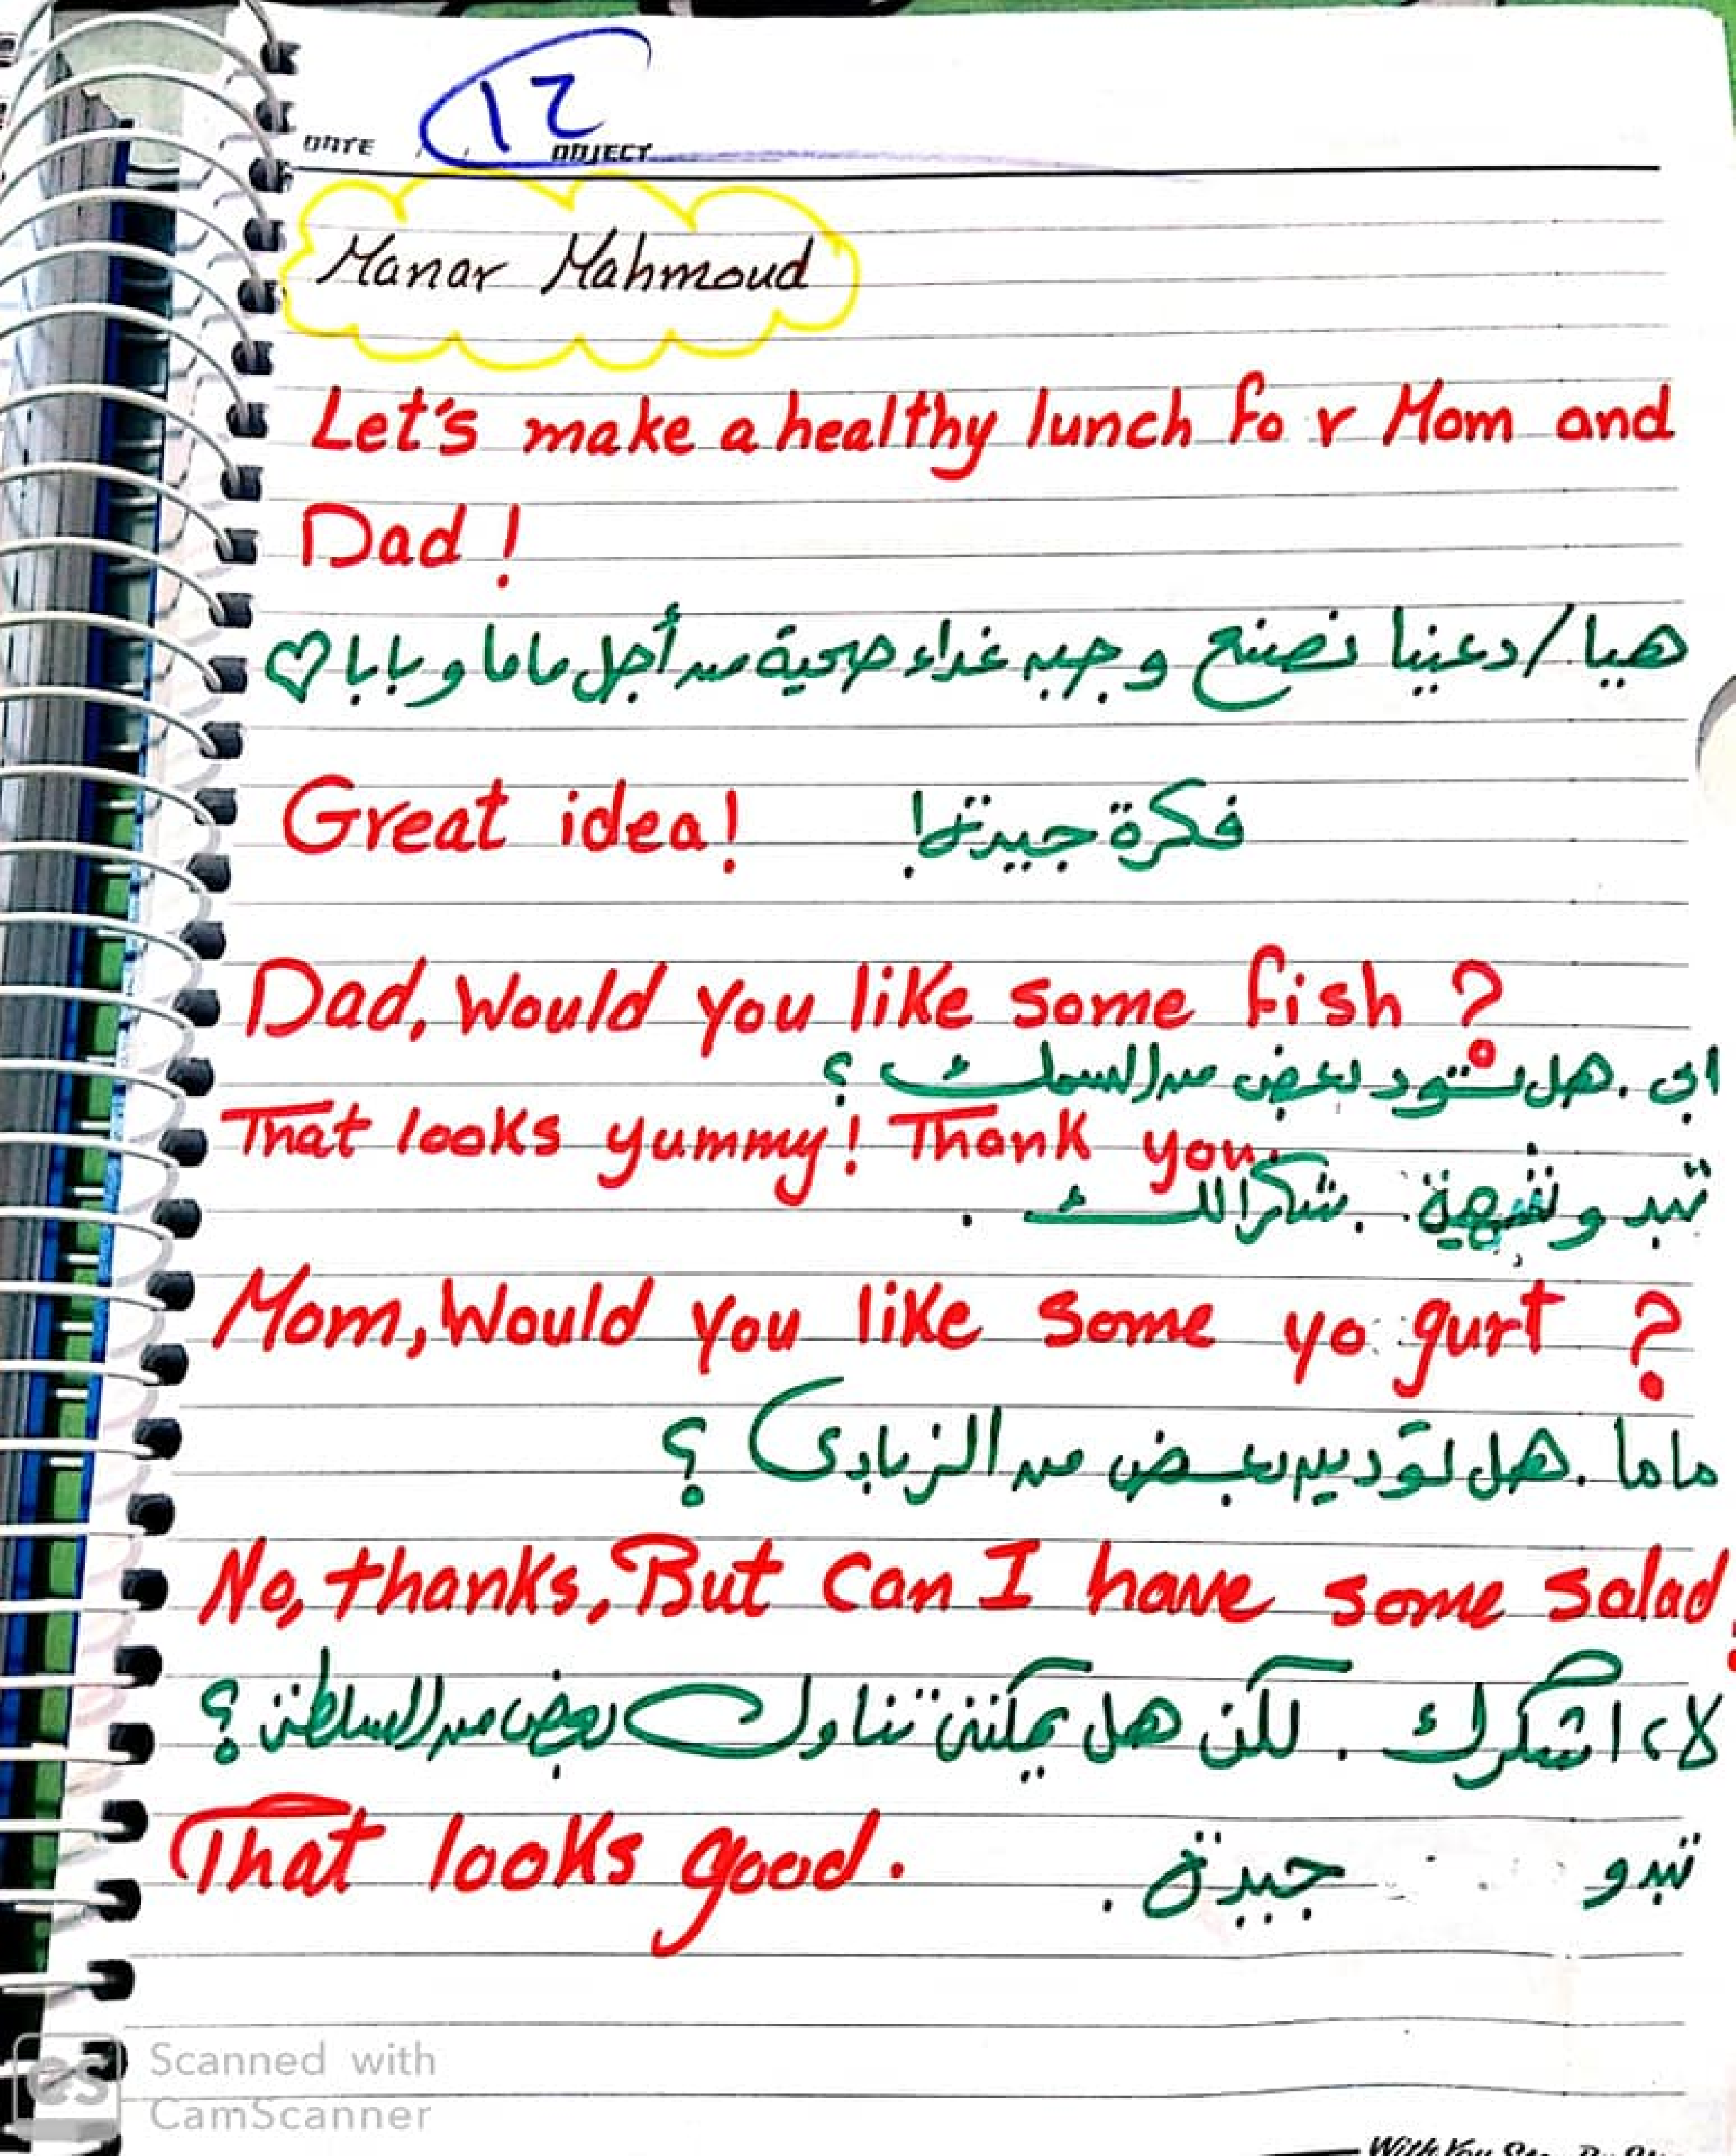 12
DATE / / OBJECT
Manar Mahmoud
Let's make a healthy lunch for Mom and
Dad!
هيا/دعينا نصنع وجبه غداء صحية من أجل ماما و بابا♡
Great idea! فكرة جيدة!
Dad, Would you like some fish?
ابي. هل تود بعض من السمك؟
That looks yummy! Thank you.
تبدو شهية. شكرا لك.
Mom, Would you like some yogurt?
ماما. هل تودين بعض من الزبادى؟
No, thanks, But can I have some salad?
لا، اشكرك. لكن هل يمكننى تناول بعض من السلطة؟
That looks good. تبدو جيدة.
Scanned with
CamScanner
With You